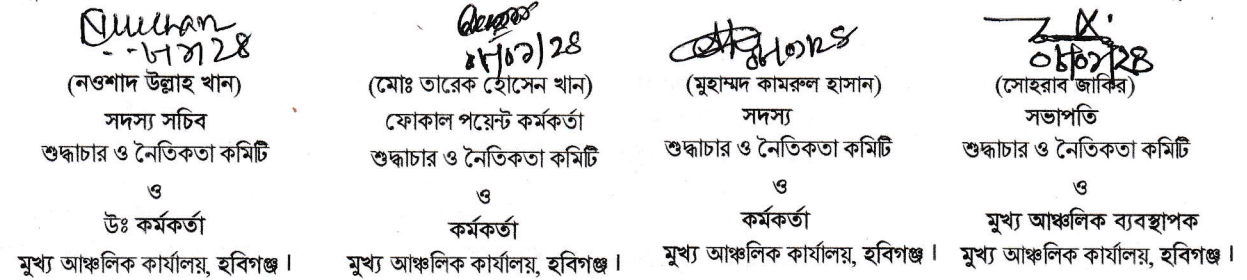 (নওশাদ উল্লাহ খান)
সদস্য সচিব
শুদ্ধাচার ও নৈতিকতা কমিটি
ও
উঃ কর্মকর্তা
মুখ্য আঞ্চলিক কার্যালয়, হবিগঞ্জ।
(মোঃ তারেক হোসেন খান)
ফোকাল পয়েন্ট কর্মকর্তা
শুদ্ধাচার ও নৈতিকতা কমিটি
ও
কর্মকর্তা
মুখ্য আঞ্চলিক কার্যালয়, হবিগঞ্জ।
(মুহাম্মদ কামরুল হাসান)
সদস্য
শুদ্ধাচার ও নৈতিকতা কমিটি
ও
কর্মকর্তা
মুখ্য আঞ্চলিক কার্যালয়, হবিগঞ্জ।
(সোহরাব জাকির)
সভাপতি
শুদ্ধাচার ও নৈতিকতা কমিটি
ও
মুখ্য আঞ্চলিক ব্যবস্থাপক
মুখ্য আঞ্চলিক কার্যালয়, হবিগঞ্জ।